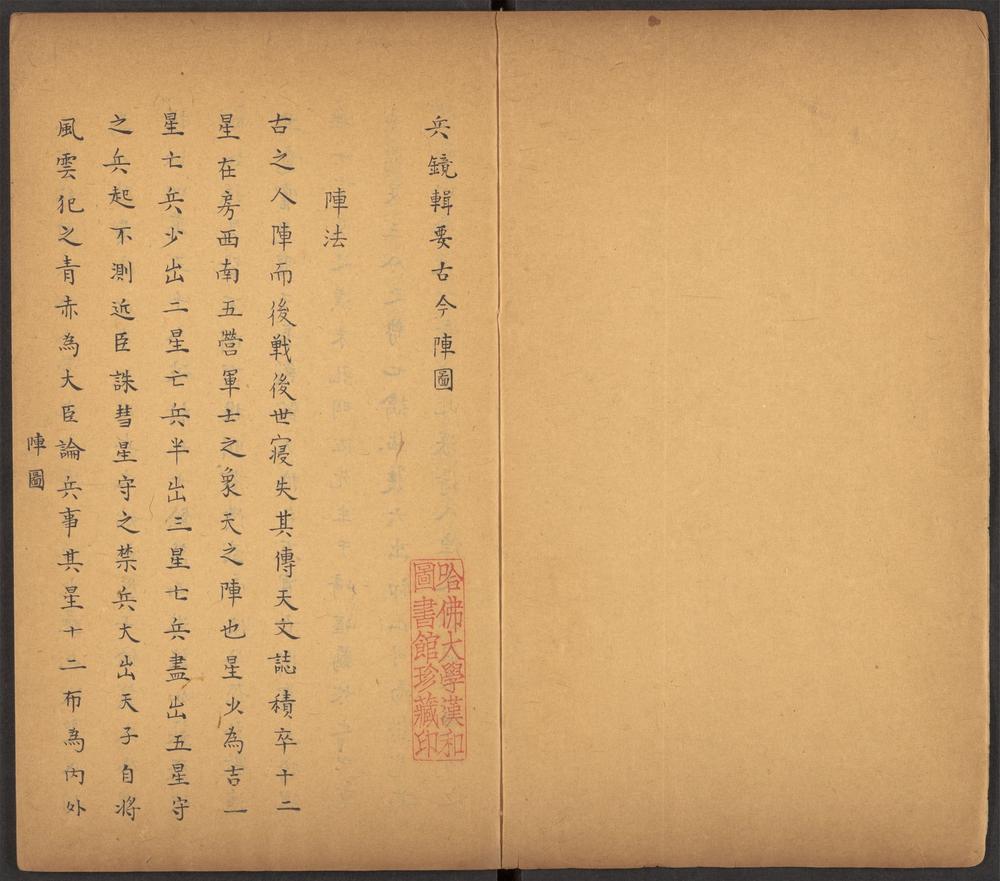 兵鏡輯要古今陣圖
陣法
古之人陣而後戰後世寖失其傳天文誌積卒十二
星在房西南五營軍士之象天之陣也星少為吉一
星亡兵少出二星亡兵半出三星亡兵盡出五星守
之兵起不測近臣誅彗星守之禁兵大出天子自將
風雲犯之青赤為大臣論兵事其星十二布為內外
陣圖
哈佛大學漢和
圖書館珍藏印